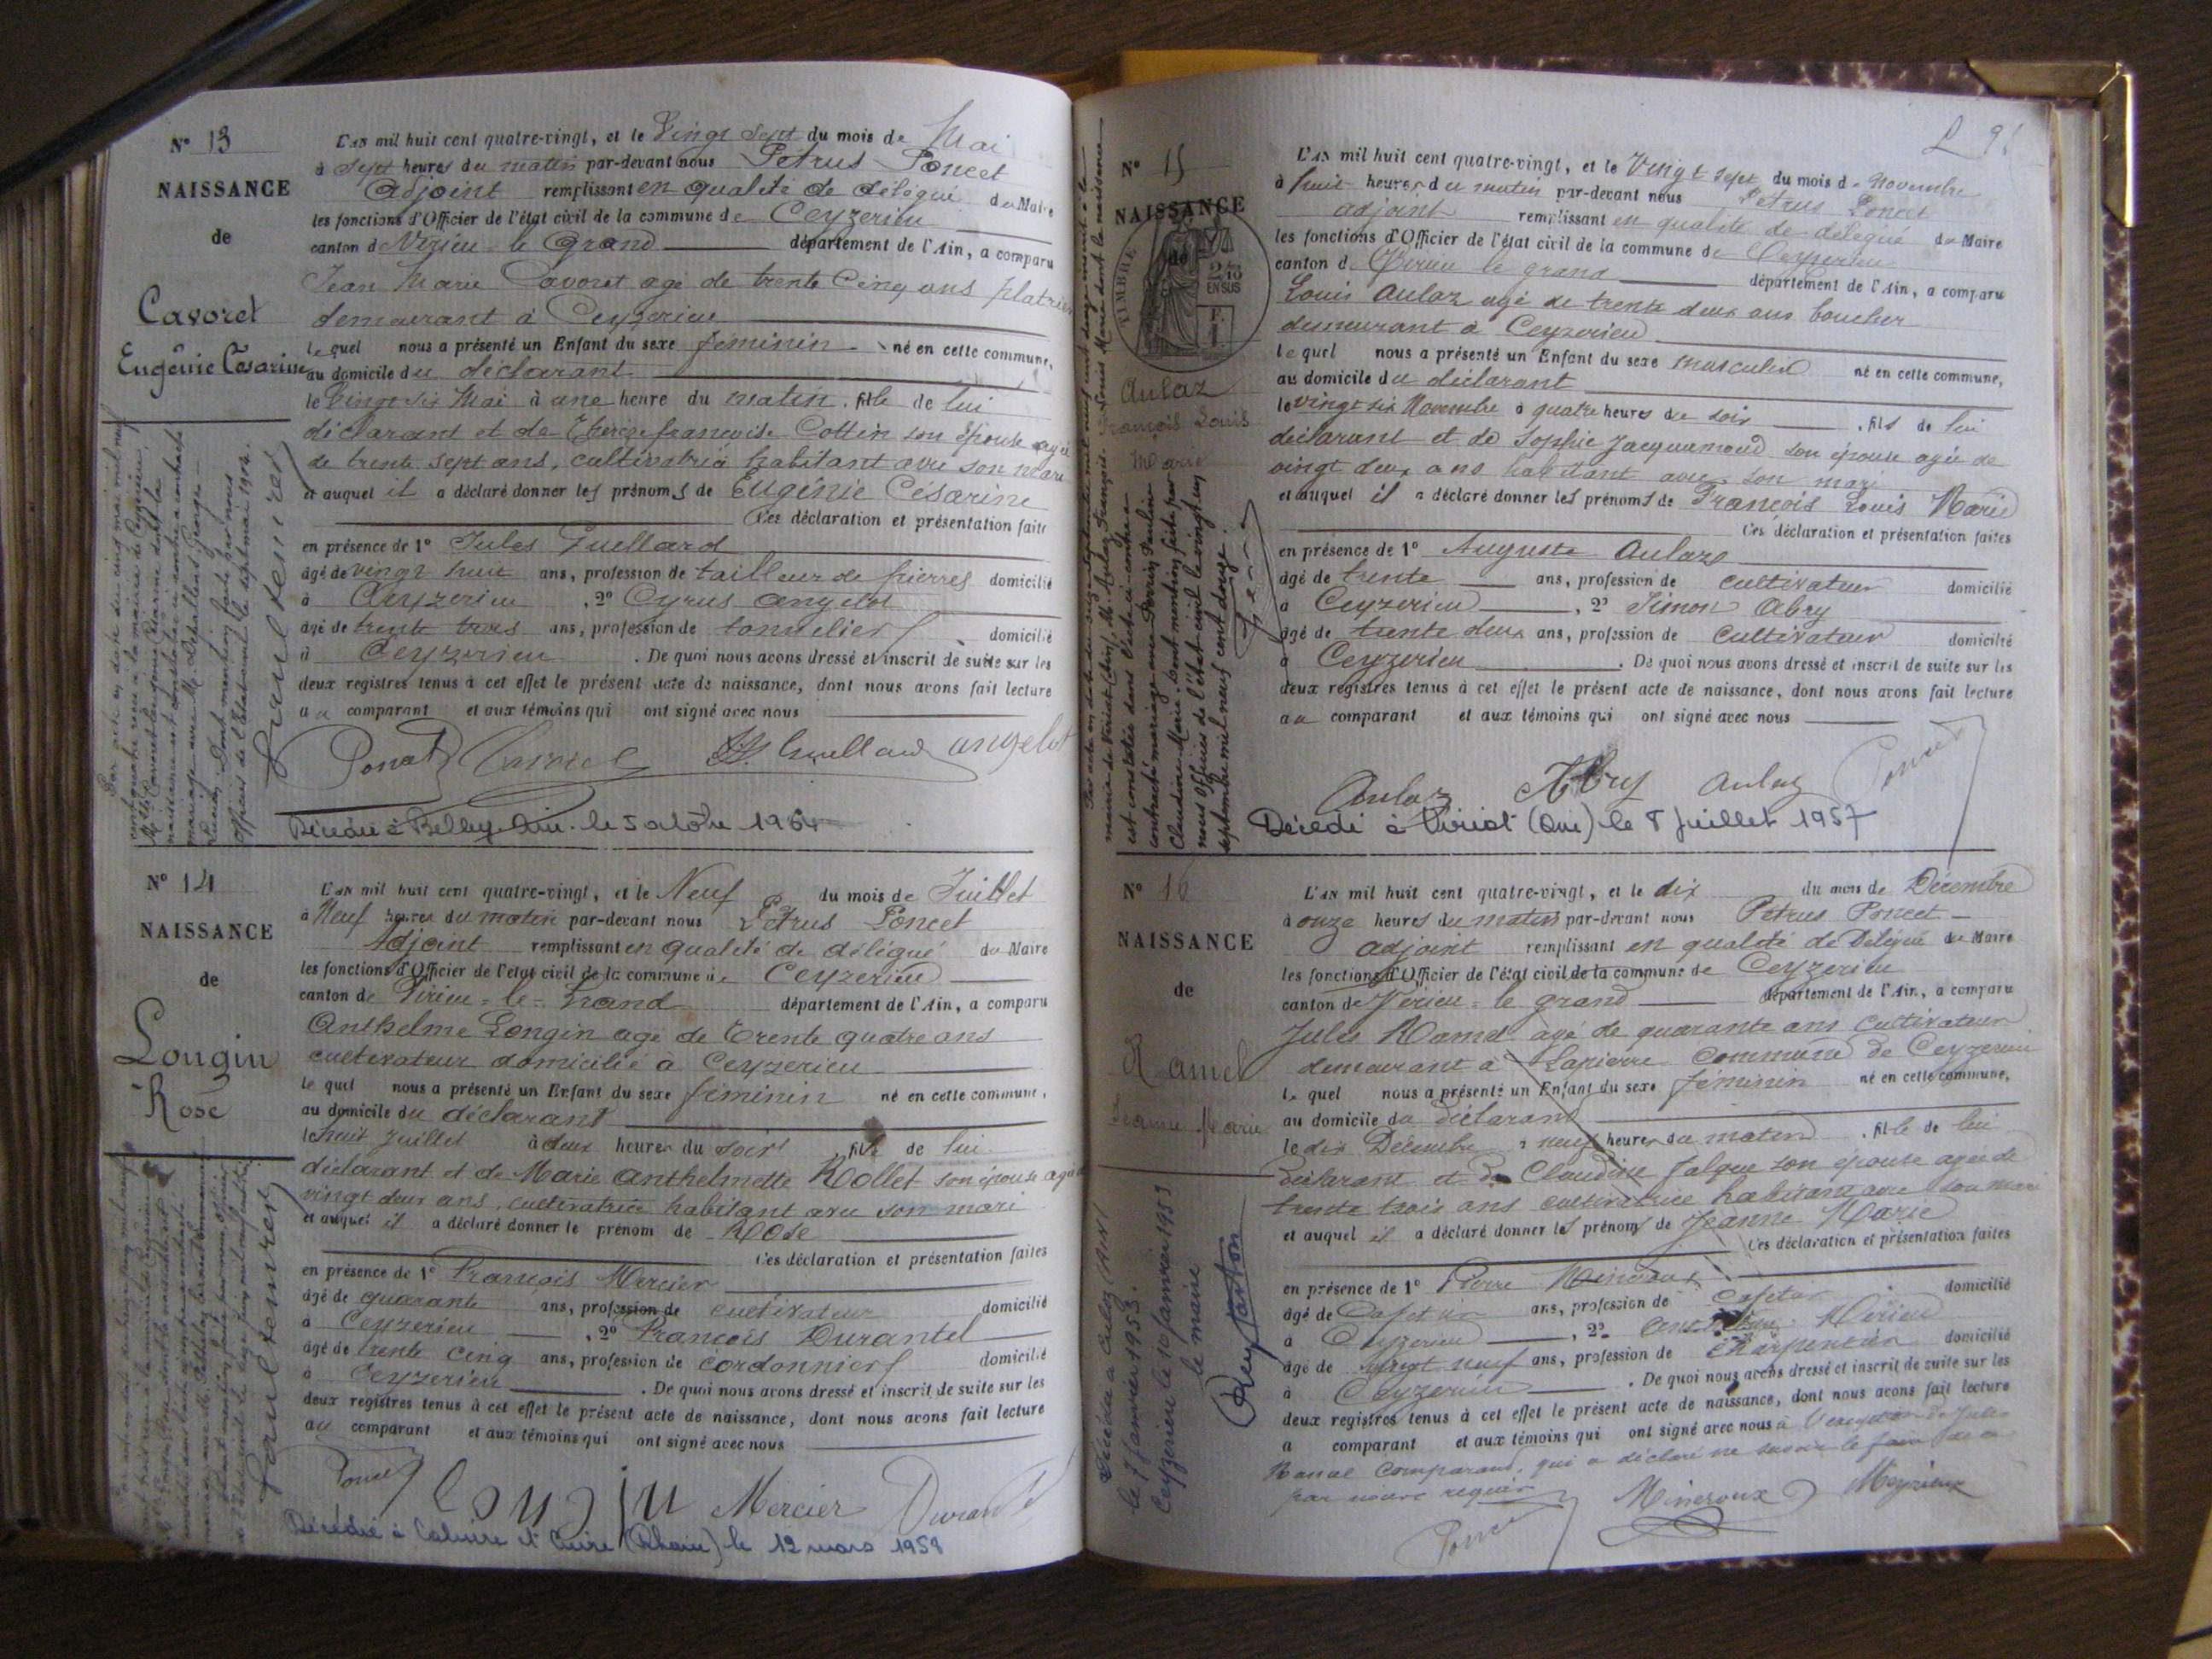 N° 13
NAISSANCE
de
Cavoret
Eugénie Césarine
L'AN mil huit cent quatre-vingt, et le Vingt Sept du mois de Mai
à Sept heures du matin par-devant nous Petrus Poncet
Adjoint remplissant en qualité de délégué du Maire
les fonctions d'Officier de l'état civil de la commune de Ceyzerieu
canton de Virieu-le Grand département de l'Ain, a comparu
Jean Marie Cavoret agé de trente Cinq ans platrier
demeurant à Ceyzerieu
lequel nous a présenté un Enfant du sexe féminin né en cette commune,
au domicile du déclarant
le Vingt six Mai à une heure du matin, fille de lui
déclarant et de Thereze françoise Cottin son épouse agée
de trente sept ans, cultivatrice habitant avec son mari
et auquel il a déclaré donner les prénoms de Eugénie Césarine
Ces déclaration et présentation faites
en présence de 1° Jules Guellard
âgé de vingt huit ans, profession de tailleur de pierres domicilié
à Ceyzerieu, 2° Cyrus Angelot
âgé de trente trois ans, profession de tonnelier domicilié
à Ceyzerieu. De quoi nous avons dressé et inscrit de suite sur les
deux registres tenus à cet effet le présent acte de naissance, dont nous avons fait lecture
au comparant et aux témoins qui ont signé avec nous
Poncet Guellard Angelot
Décédée à Belley Ain le 5 octobre 1964
N° 14
NAISSANCE
de
Longin
Rose
L'AN mil huit cent quatre-vingt, et le Neuf du mois de Juillet
à Neuf heures du matin par-devant nous Petrus Poncet
Adjoint remplissant en qualité de délégué du Maire
les fonctions d'Officier de l'état civil de la commune de Ceyzerieu
canton de Virieu-le-Grand département de l'Ain, a comparu
Anthelme Longin agé de trente quatre ans
cultivateur domicilié à Ceyzerieu
lequel nous a présenté un Enfant du sexe féminin né en cette commune,
au domicile du déclarant
le huit Juillet à deux heures du soir, fille de lui
déclarant et de Marie Anthelmette Rollet son épouse agée
vingt deux ans, cultivatrice habitant avec son mari
et auquel il a déclaré donner le prénom de Rose
Ces déclaration et présentation faites
en présence de 1° François Mercier
âgé de quarante ans, profession de cultivateur domicilié
à Ceyzerieu, 2° François Durantel
âgé de trente cinq ans, profession de cordonnier domicilié
à Ceyzerieu. De quoi nous avons dressé et inscrit de suite sur les
deux registres tenus à cet effet le présent acte de naissance, dont nous avons fait lecture
au comparant et aux témoins qui ont signé avec nous
Poncet Longin Mercier Durantel
Décédée à Caluire et Cuire (Rhône) le 12 mars 1958
N° 15
NAISSANCE
de
TIMBRE
2/10 EN SUS
Aulaz
François Louis
Marie
L'AN mil huit cent quatre-vingt, et le Vingt sept du mois de Novembre
à huit heures du matin par-devant nous Petrus Poncet
adjoint remplissant en qualité de délégué du Maire
les fonctions d'Officier de l'état civil de la commune de Ceyzerieu
canton de Virieu le grand département de l'Ain, a comparu
Louis Aulaz agé de trente deux ans boucher
demeurant à Ceyzerieu
lequel nous a présenté un Enfant du sexe masculin né en cette commune,
au domicile du déclarant
le vingt six Novembre à quatre heures de soir, fils de lui
déclarant et de Sophie Jacquemoud son épouse agée de
vingt deux ans habitant avec son mari
et auquel il a déclaré donner les prénoms de François Louis Marie
Ces déclaration et présentation faites
en présence de 1° Auguste Aulaz
âgé de trente ans, profession de cultivateur domicilié
à Ceyzerieu, 2° Simon Abry
âgé de trente deux ans, profession de cultivateur domicilié
à Ceyzerieu. De quoi nous avons dressé et inscrit de suite sur les
deux registres tenus à cet effet le présent acte de naissance, dont nous avons fait lecture
au comparant et aux témoins qui ont signé avec nous
Aulaz Abry Aulaz Poncet
Décédé à Viriat (Ain) le 8 Juillet 1957
N° 16
NAISSANCE
de
Ramel
Jeanne Marie
L'AN mil huit cent quatre-vingt, et le dix du mois de Décembre
à onze heures du matin par-devant nous Petrus Poncet
adjoint remplissant en qualité de Délégué du Maire
les fonctions d'Officier de l'état civil de la commune de Ceyzerieu
canton de Virieu-le grand département de l'Ain, a comparu
Jules Ramel agé de quarante ans cultivateur
demeurant à Lapierre Commune de Ceyzerieu
lequel nous a présenté un Enfant du sexe féminin né en cette commune,
au domicile du déclarant
le dix Décembre à neuf heures du matin, fille de lui
déclarant et de Claudine Falque son épouse agée de
trente trois ans cultivatrice habitant avec son mari
et auquel il a déclaré donner les prénoms de Jeanne Marie
Ces déclaration et présentation faites
en présence de 1° Pierre Mineroux
âgé de Cafetier ans, profession de Cafetier domicilié
à Ceyzerieu, 2° Meyrieux
âgé de vingt neuf ans, profession de charpentier domicilié
à Ceyzerieu. De quoi nous avons dressé et inscrit de suite sur les
deux registres tenus à cet effet le présent acte de naissance, dont nous avons fait lecture
a comparant et aux témoins qui ont signé avec nous à l'exception de Jules
Ramel Comparant, qui a déclaré ne savoir le faire de ce
par nous requis
Poncet Mineroux Meyrieux
Décédée à Culoz (Ain)
le 7 janvier 1953.
Ceyzerieu le 10 janvier 1953
le maire